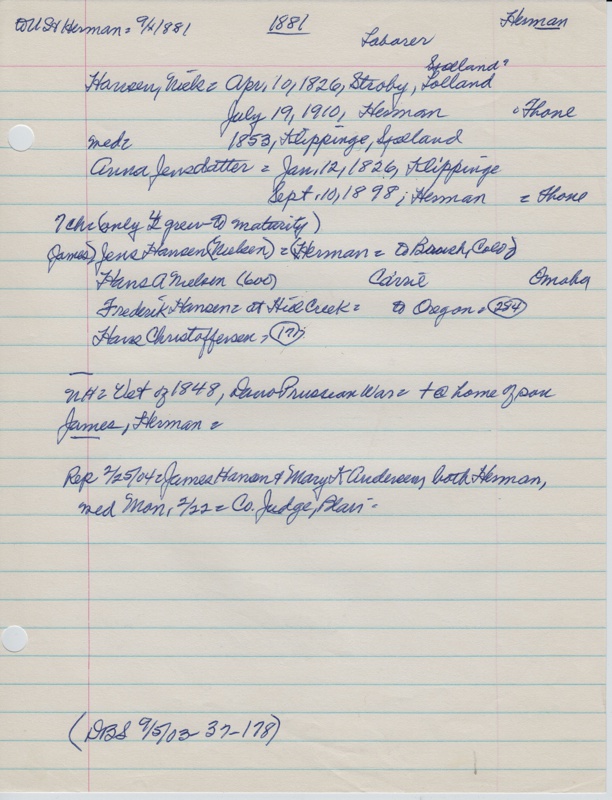 to US & Herman = 9/1/1881 1881 Herman
Laborer
Sjælland?
Hansen, Niels = Apr. 10, 1826, Stroby, Lolland
July 19, 1910, Herman = Thone
med = 1853, Klippinge, Sjælland
Anna Jensdatter = Jan. 12, 1826, Klippinge
Sept. 10, 1898, Herman = Thone
7 ch = (only 4 grew to maturity)
(James) Jens Hansen (Nielsen) = (Herman = to Brush, Colo)
Hans A Nielsen (600) Carrie Omaha
Frederik Hansen = at Hill Creek = to Oregon = 254
Hans Christoffersen = 171
NH = Vet of 1848, Dano Prussian War = + @ home of son
James, Herman =
Rep 2/25/04 = James Hansen & Mary K Andersen, both Herman,
med Mon, 2/22 = Co. Judge, Blair =
(DBS 9/5/03 - 37-178)